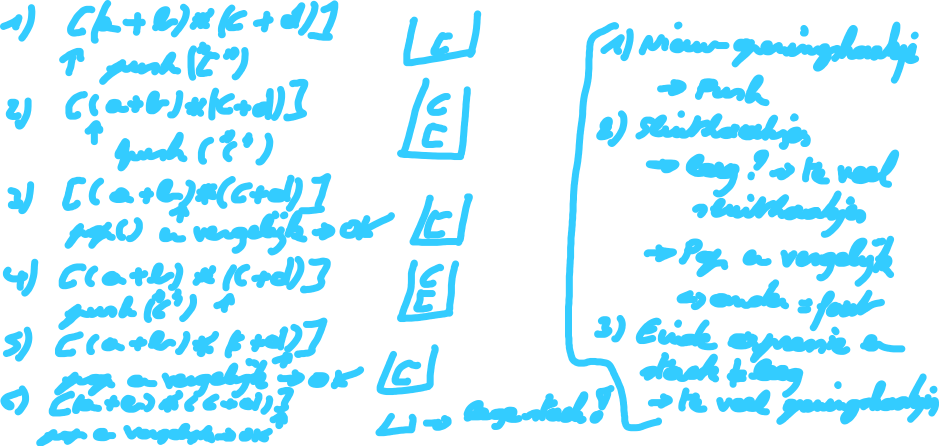 1) [(a+b)*(c+d)]
↑ push("[")
[
2) [(a+b)*(c+d)]
↑ push("(")
(
[
3) [(a+b)*(c+d)]
pop() en vergelijk → ok ✓
[
4) [(a+b)*(c+d)]
push("(") ↑
(
[
5) [(a+b)*(c+d)]
pop en vergelijk → ok ✓
[
6) [(a+b)*(c+d)]
pop en vergelijk → ok
→ lege stack!
1) nieuw openingshaakje
→ Push
2) sluithaakje
→ leeg? → te veel
sluithaakjes
→ Pop en vergelijk
→ anders = fout
3) Einde expressie en
stack ≠ leeg
→ te veel openingshaakjes